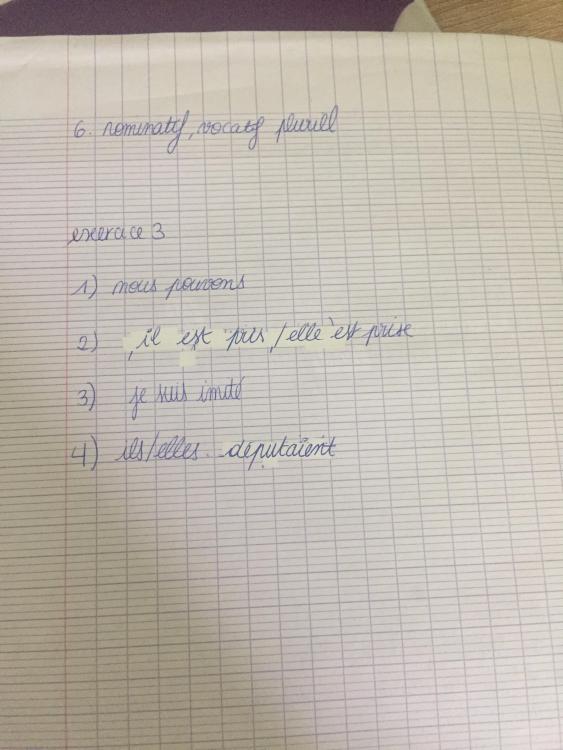 6. nominatif, vocatif pluriel
exercice 3
1) nous pouvons
2) il est pris / elle est prise
3) je suis imité
4) ils/elles députaient